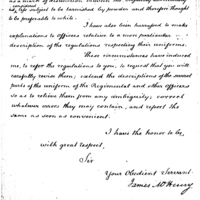 is, less subject to be tarnished by powder and therefore thought
to be preferable to white.
I have also been harassed to make
explanations to officers relative to a more particular
description of the regulations respecting their uniforms.
These circumstances have induced
me, to refer the regulations to you, to request that you will
carefully revise them; extend the descriptions of the several
parts of the uniform of the Regimental and other officers
so as to relieve them from any ambiguity; correct
whatever errors they may contain, and report the
same as soon as convenient.
I have the honor to be,
with great respect,
Sir
Your Obedient Servant
James McHenry